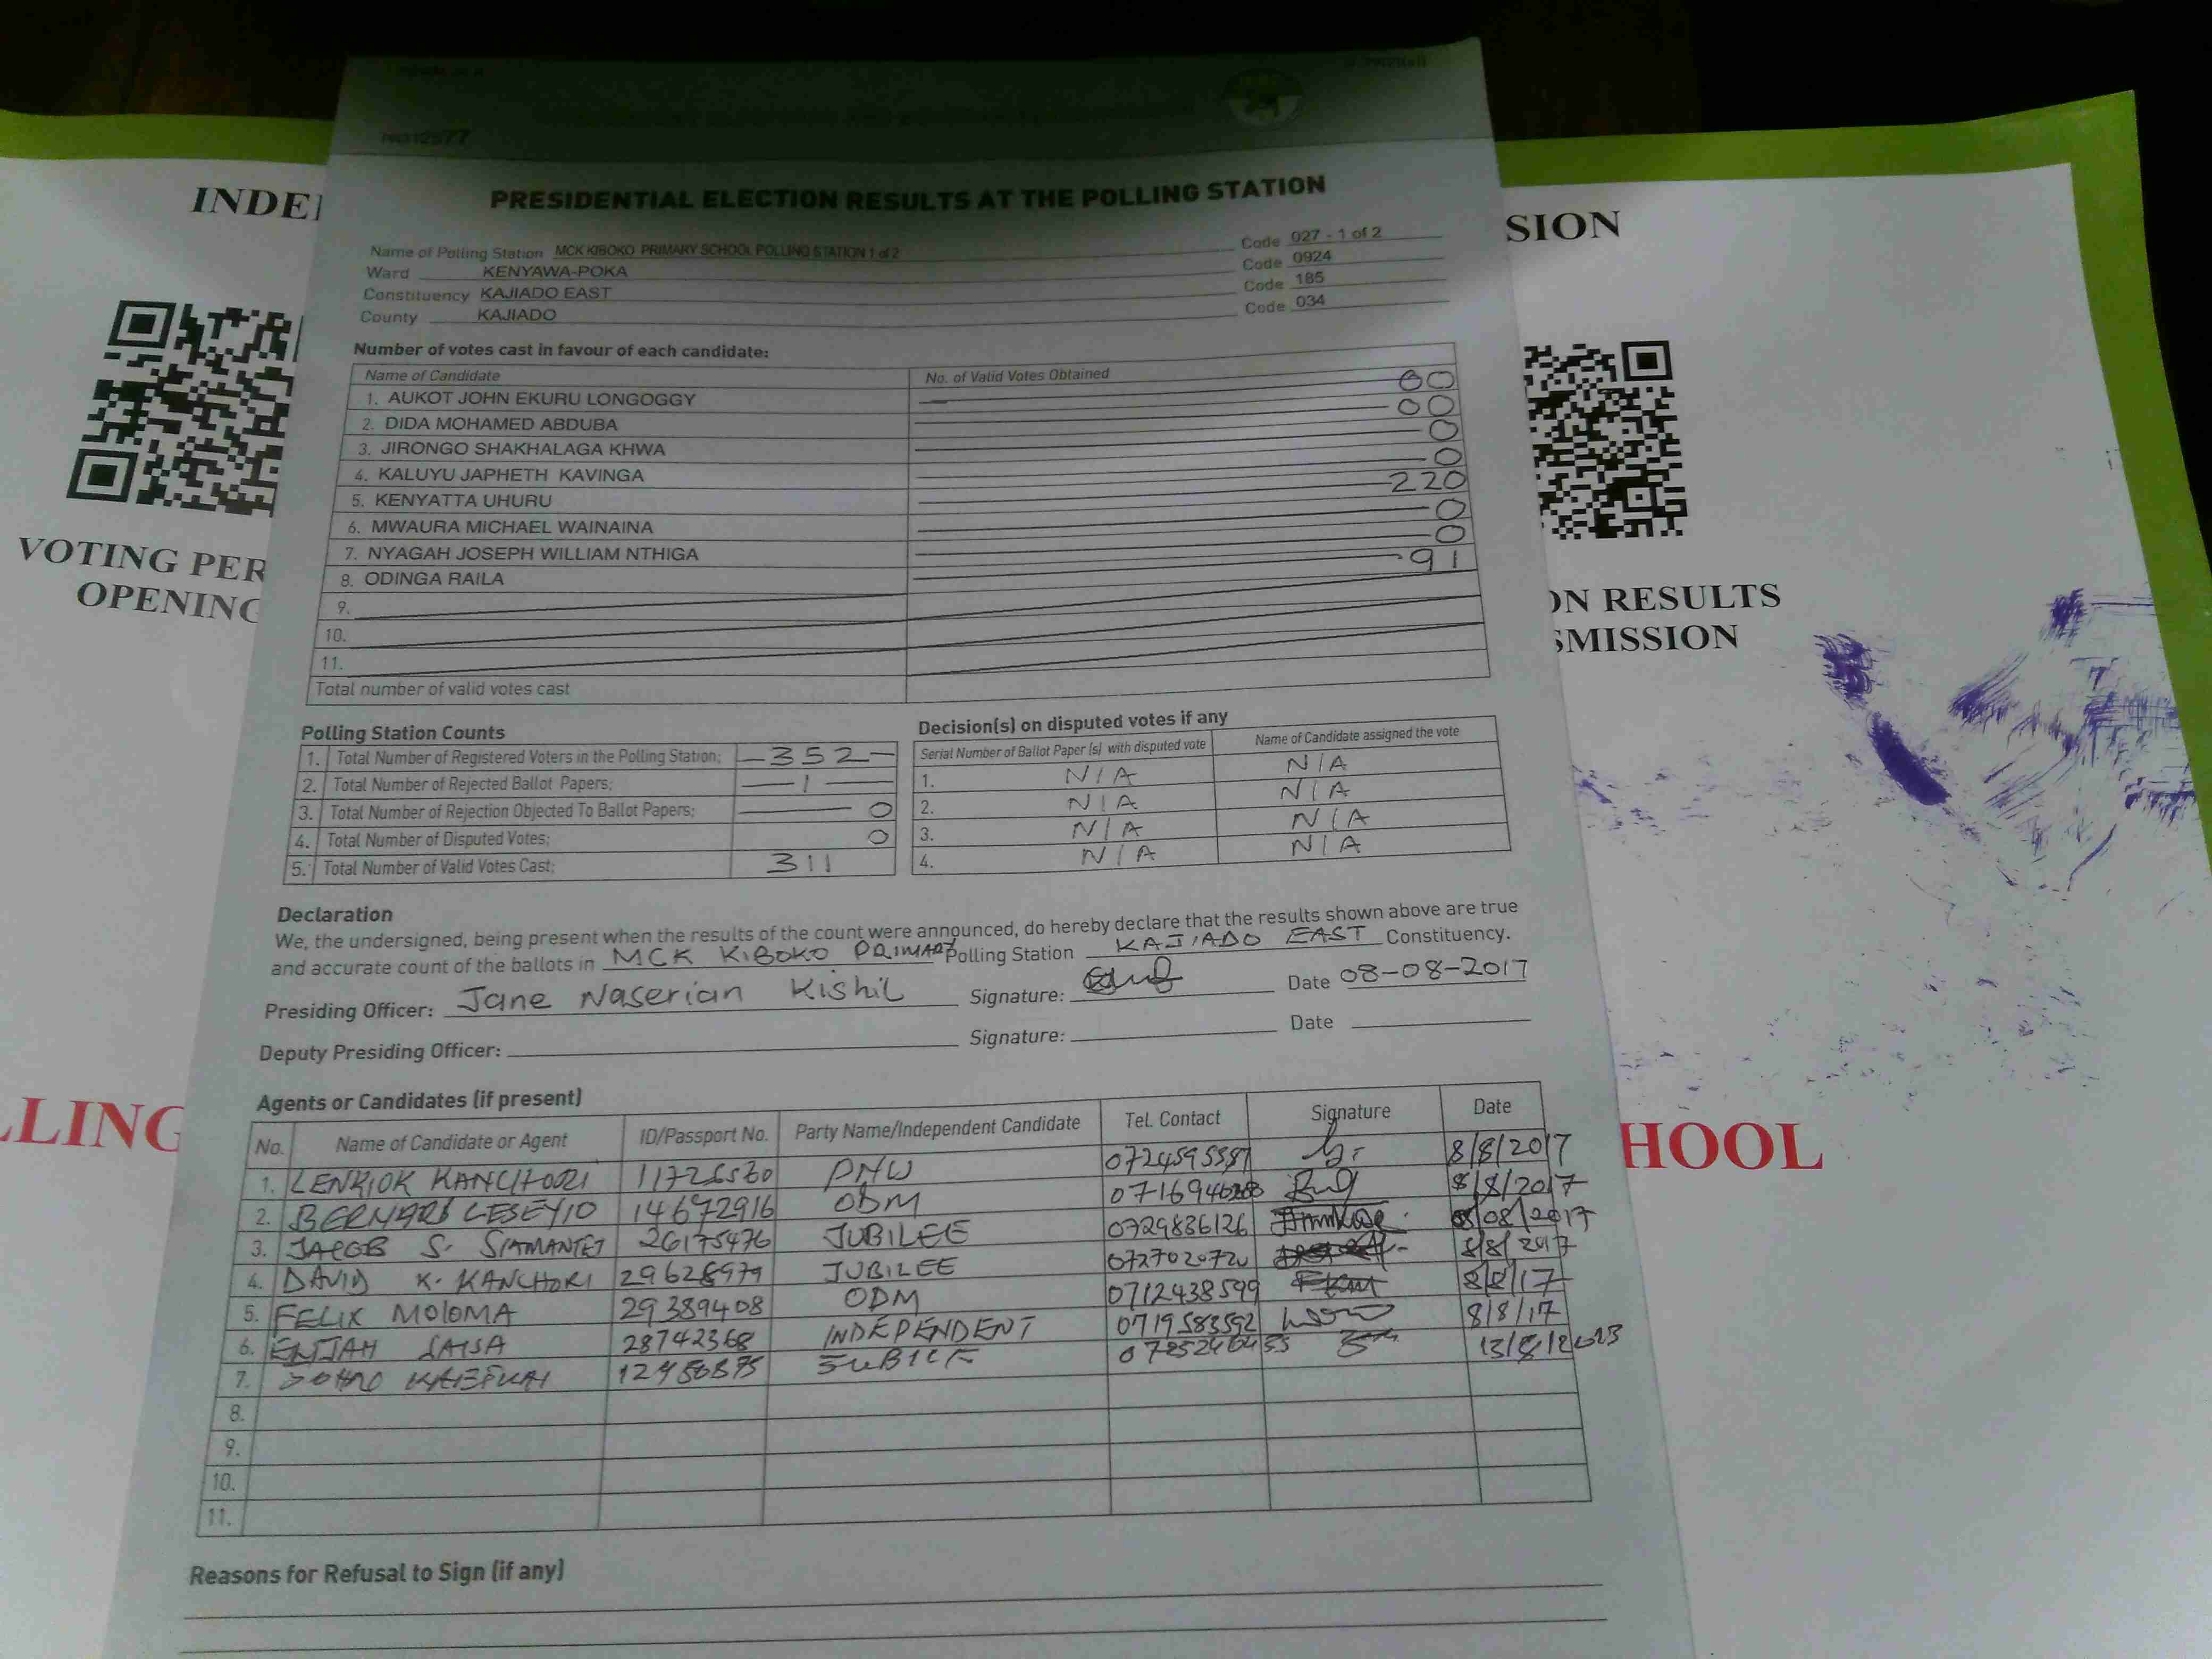 INDE
SION
VOTING PER
OPENING
ON RESULTS
SMISSION
LLING
HOOL
PRESIDENTIAL ELECTION RESULTS AT THE POLLING STATION
Name of Polling Station MCK KIBOKO PRIMARY SCHOOL POLLING STATION 1 of 2 Code 027 - 1 of 2
Ward KENYAWA-POKA Code 0924
Constituency KAJIADO EAST Code 185
County KAJIADO Code 034
Number of votes cast in favour of each candidate:
Name of Candidate No. of Valid Votes Obtained
1. AUKOT JOHN EKURU LONGOGGY 00
2. DIDA MOHAMED ABDUBA 00
3. JIRONGO SHAKHALAGA KHWA 0
4. KALUYU JAPHETH KAVINGA 0
5. KENYATTA UHURU 220
6. MWAURA MICHAEL WAINAINA 0
7. NYAGAH JOSEPH WILLIAM NTHIGA 0
8. ODINGA RAILA 91
9.
10.
11.
Total number of valid votes cast
Polling Station Counts
1. Total Number of Registered Voters in the Polling Station; 352
2. Total Number of Rejected Ballot Papers; 1
3. Total Number of Rejection Objected To Ballot Papers; 0
4. Total Number of Disputed Votes; 0
5. Total Number of Valid Votes Cast; 311
Decision(s) on disputed votes if any
Serial Number of Ballot Paper (s) with disputed vote Name of Candidate assigned the vote
1. N/A N/A
2. N/A N/A
3. N/A N/A
4. N/A N/A
Declaration
We, the undersigned, being present when the results of the count were announced, do hereby declare that the results shown above are true
and accurate count of the ballots in MCK KIBOKO PRIMARY Polling Station KAJIADO EAST Constituency.
Presiding Officer: Jane Naserian Kishil Signature: Date 08-08-2017
Deputy Presiding Officer: Signature: Date
Agents or Candidates (if present)
No. Name of Candidate or Agent ID/Passport No. Party Name/Independent Candidate Tel. Contact Signature Date
1. LENKIOK KANCHORI PNU 8/8/2017
2. BERNARD LESEYIO 14672916 ODM 8/8/2017
3. JACOB S. SIAMANTET 26175476 JUBILEE 0729836126 08/08/2017
4. DAVID K. KANCHORI 29628979 JUBILEE 0727020720 8/8/2017
5. FELIX MOLOMA 29389408 ODM 0712438599 8/8/17
6. SAISA 28742368 INDEPENDENT 0719583592 8/8/17
7.
8.
9.
10.
11.
Reasons for Refusal to Sign (if any)